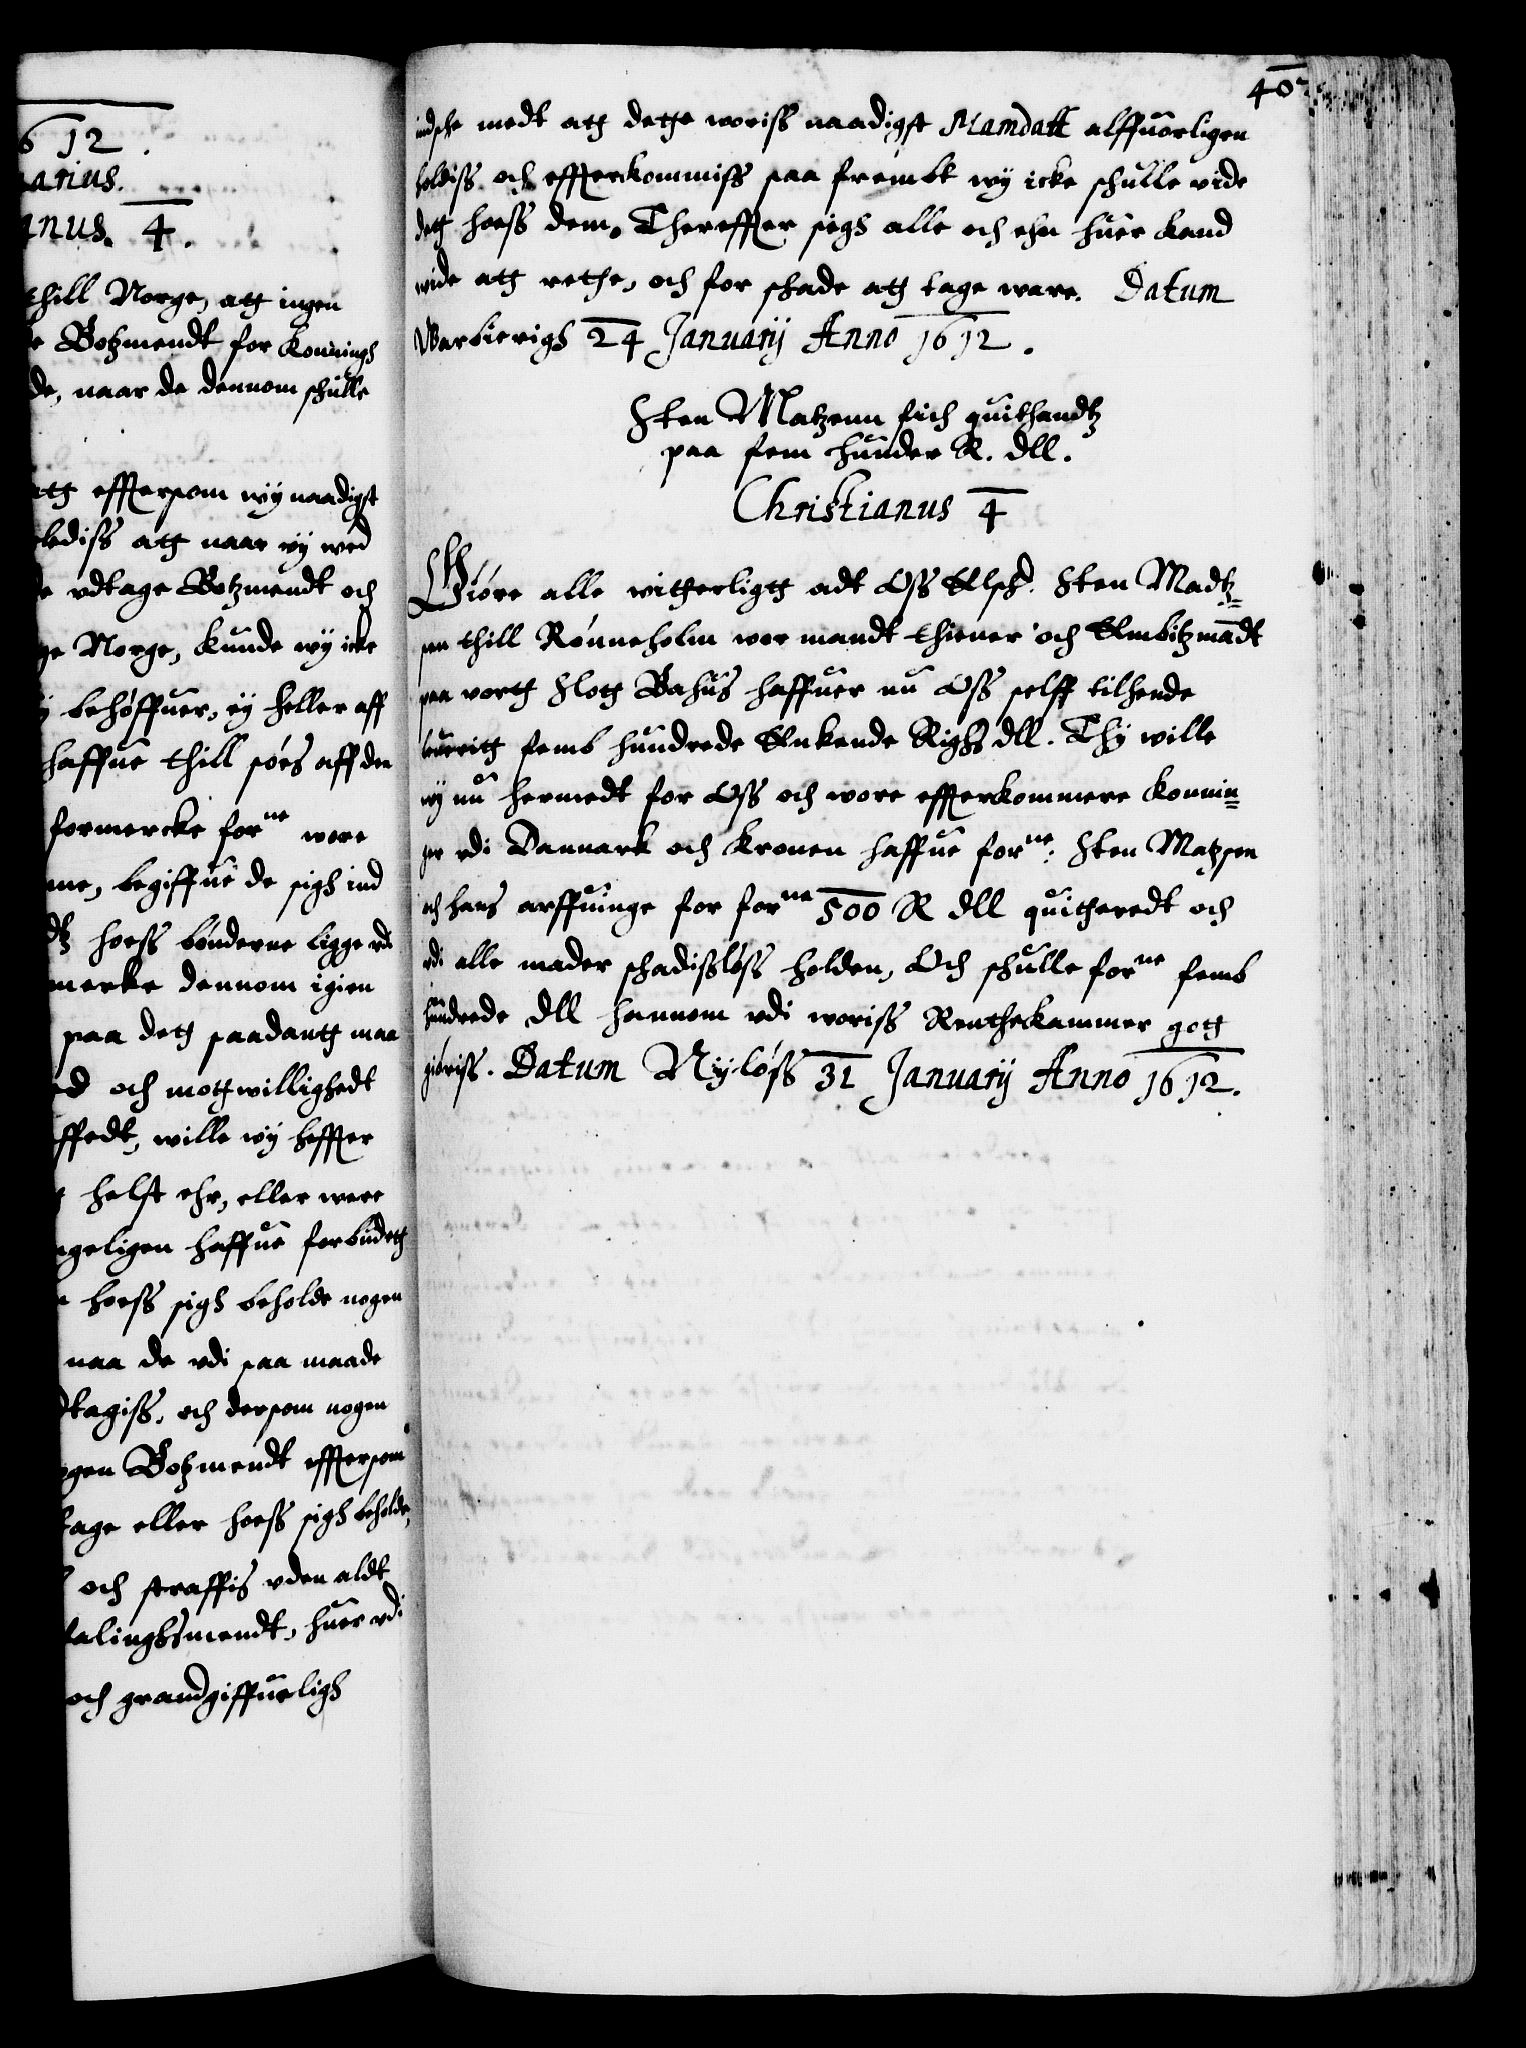 612.
arius.
anus. 4.
thill Norge, att ingen
e Botzmendt for Konnings
de, naar de dennom schulle
att effterson wij naadigst
lediss att naar wij wed
e vdtage Botzmendt och
ge Norge, kunde wij icke
behøffuer, ej heller aff
haffue thill søes aff den
formercke forne wore
me, begiffue de sigh ind
dtz hoess bønderne ligge vdi
merke dennom igien
paa dett saadantt maa
ed och mottwillighedt
ffedt, wille wij heffter
helst ehr, eller were
ngeligen haffue forbudett
hoess sigh beholde nogen
naa de vdi saa maade
dtagiss, och dersom nogen
ogen Botzmendt effterson
tage eller hoess sigh beholde,
och straffis vden aldt
falinghsmendt, huer vdi
och grandgiffueligh
40
indsehe medt att dette woriss naadigst Mandatt alffuorligen
holdiss och effterkommiss saa frembt wij icke schulle vide
dett hoess dem. Thereffter sigh alle och ehn huer kand
wide att rette, och for schade att tage ware. Datum
Warbierigh 24 January Anno 1612.
Sten Matzenn fich quithandtz
paa fem hunder R. dll.
Christianus 4
Giøre alle witterligtt adt Oss Elsch. Sten Madtz=
sen thill Rønneholm wor mandt thiener och Embitzmandt
paa vortt Slott Bahus haffuer nu Oss selff tilhende
leurritt femb hundrede Enkende Righs dll. Thj wille
wij nu hermedt for Oss och wore effterkommere Konnin=
ger vdi Danmark och Kronen haffue forne: Sten Matzsen
och hans arffuinge for forne 500 R dll quitheredt och
vdi alle mader schadissløss holden, Och schulle forne femb
hundrede dll hannom vdi woriss Renthekammer gott
giøriss. Datum Nyløss 31 January Anno 1612.